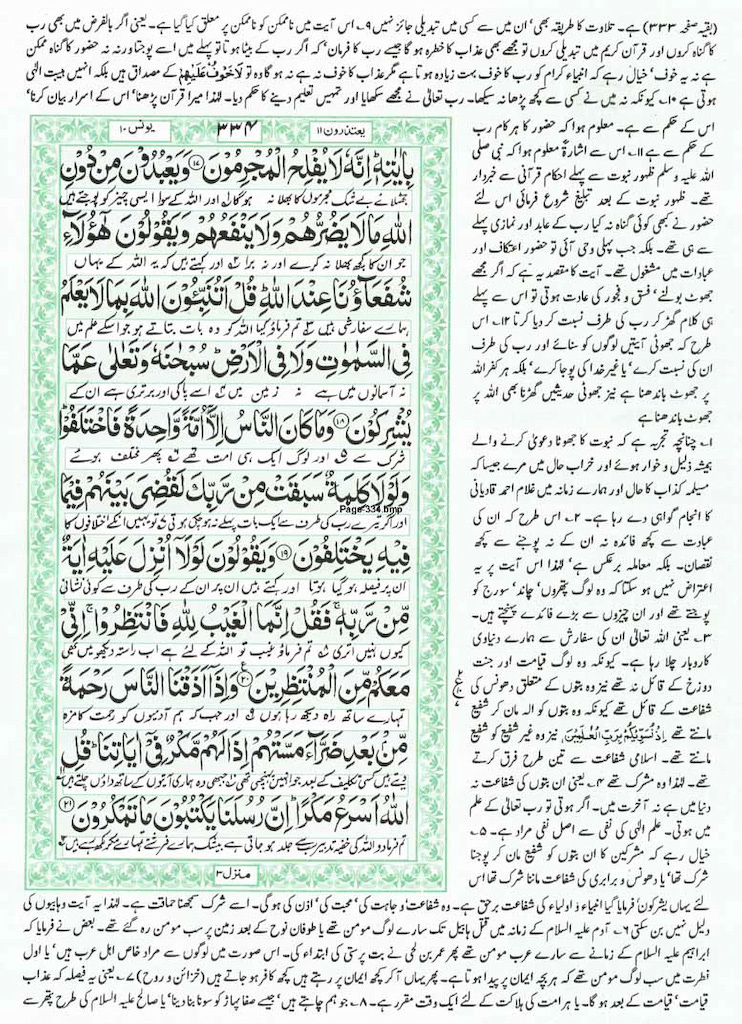 (بقیہ صفحہ ۳۳۳) ہے۔ تلاوت کا طریقہ بھی' ان میں سے کسی میں تبدیلی جائز نہیں ۹۔ اس آیت میں ناممکن کو ناممکن پر معلق کیا گیا ہے۔ یعنی اگر بالفرض میں بھی رب
کا گناہ کروں اور قرآن کریم میں تبدیلی کروں تو مجھے بھی عذاب کا خطرہ ہو گا جیسے رب کا فرمان' کہ اگر رب کے بیٹا ہوتا تو پہلے میں اسے پوجتا ورنہ نہ حضور کا گناہ ممکن
ہے نہ یہ خوف' خیال رہے کہ انبیاء کرام کو رب کا خوف بہت زیادہ ہوتا ہے مگر عذاب کا خوف نہ ہے نہ ہو گا وہ تو لَا خَوْفٌ عَلَيْهِمْ کے مصداق ہیں بلکہ انہیں ہیبت الٰہی
ہوتی ہے ۱۰۔ کیونکہ نہ میں نے کسی سے کچھ پڑھا نہ سیکھا۔ رب تعالیٰ نے مجھے سکھایا اور تمہیں تعلیم دینے کا حکم دیا۔ لہٰذا میرا قرآن پڑھنا' اس کے اسرار بیان کرنا'
اس کے حکم سے ہے۔ معلوم ہوا کہ حضور کا ہر کام رب
کے حکم سے ہے ۱۱۔ اس سے اشارۃً معلوم ہوا کہ نبی صلی
اللہ علیہ وسلم ظہور نبوت سے پہلے احکام قرآنی سے خبردار
تھے۔ ظہور نبوت کے بعد تبلیغ شروع فرمائی اس لئے
حضور نے کبھی کوئی گناہ نہ کیا رب کے عابد اور نمازی پہلے
سے ہی تھے۔ بلکہ جب پہلی وحی آئی تو حضور اعتکاف اور
عبادات میں مشغول تھے۔ آیت کا مقصد یہ ہے کہ اگر مجھے
جھوٹ بولنے' فسق و فجور کی عادت ہوتی تو اس سے پہلے
ہی کلام گھڑ کر رب کی طرف نسبت کر دیا کرتا ۱۲۔ اس
طرح کہ جھوٹی آیتیں لوگوں کو سنائے اور رب کی طرف
ان کی نسبت کرے' یا غیر خدا کی پوجا کرے' بلکہ ہر کفر اللہ
پر جھوٹ باندھنا ہے نیز جھوٹی حدیثیں گھڑنا بھی اللہ پر
جھوٹ باندھنا ہے
۱۔ چنانچہ تجربہ ہے کہ نبوت کا جھوٹا دعویٰ کرنے والے
ہمیشہ ذلیل و خوار ہوئے اور خراب حال میں مرے جیسا کہ
مسیلمہ کذاب کا حال اور ہمارے زمانہ میں غلام احمد قادیانی
کا انجام گواہی دے رہا ہے۔ ۲۔ اس طرح کہ ان کی
عبادت سے کچھ فائدہ نہ ان کے نہ پوجنے سے کچھ
نقصان۔ بلکہ معاملہ برعکس ہے' لہٰذا اس آیت پر یہ
اعتراض نہیں ہو سکتا کہ وہ لوگ پتھروں' چاند' سورج کو
پوجتے تھے اور ان چیزوں سے بڑے فائدے پہنچتے ہیں۔
۳۔ یعنی اللہ تعالیٰ ان کی سفارش سے ہمارے دنیاوی
کاروبار چلا رہا ہے۔ کیونکہ وہ لوگ قیامت اور جنت
دوزخ کے قائل نہ تھے نیز وہ بتوں کے متعلق دھونس کی
شفاعت کے قائل تھے کیونکہ وہ بتوں کو الٰہ مان کر شفیع
مانتے تھے اِذْ نُسَوِّيْكُمْ بِرَبِّ الْعٰلَمِيْنَ نیز وہ غیر شفیع کو شفیع
مانتے تھے۔ اسلامی شفاعت سے تین طرح فرق کرتے
تھے۔ لہٰذا وہ مشرک تھے ۴۔ یعنی ان بتوں کی شفاعت نہ
دنیا میں ہے نہ آخرت میں۔ اگر ہوتی تو رب تعالیٰ کے علم
میں ہوتی۔ علم الٰہی کی نفی سے اصل نفی مراد ہے۔ ۵۔
خیال رہے کہ مشرکین کا ان بتوں کو شفیع مان کر پوجنا
شرک تھا' یا دھونس و برابری کی شفاعت ماننا شرک تھا اس
یعتذرون ۱۱
۳۳۴
یونس ۱۰
بِاٰيٰتِهٖ اِنَّهٗ لَا يُفْلِحُ الْمُجْرِمُوْنَ ۱۷ وَيَعْبُدُوْنَ مِنْ دُوْنِ
جھٹلائے بے شک مجرموں کا بھلا نہ ہو گا اور اللہ کے سوا ایسی چیز کو پوجتے ہیں
اللّٰهِ مَا لَا يَضُرُّهُمْ وَلَا يَنْفَعُهُمْ وَيَقُوْلُوْنَ هٰٓؤُلَآءِ
جو ان کا کچھ بھلا نہ کرے اور نہ برا اور کہتے ہیں کہ یہ اللہ کے یہاں
شُفَعَآؤُنَا عِنْدَ اللّٰهِ قُلْ اَتُنَبِّـُٔوْنَ اللّٰهَ بِمَا لَا يَعْلَمُ
ہمارے سفارشی ہیں تم فرماؤ کیا اللہ کو وہ بات بتاتے ہو جو اسکے علم میں
فِي السَّمٰوٰتِ وَلَا فِي الْاَرْضِ سُبْحٰنَهٗ وَتَعٰلٰى عَمَّا
نہ آسمانوں میں ہے نہ زمین میں اسے پاکی اور برتری ہے ان کے
يُشْرِكُوْنَ ۱۸ وَمَا كَانَ النَّاسُ اِلَّآ اُمَّةً وَّاحِدَةً فَاخْتَلَفُوْا
شرک سے اور لوگ ایک ہی امت تھے پھر مختلف ہوئے
وَلَوْلَا كَلِمَةٌ سَبَقَتْ مِنْ رَّبِّكَ لَقُضِيَ بَيْنَهُمْ فِيْمَا
Page-334.bmp
اور اگر تیرے رب کی طرف سے ایک بات پہلے نہ ہو چکی ہوتی تو یہیں انکے اختلافوں کا
فِيْهِ يَخْتَلِفُوْنَ ۱۹ وَيَقُوْلُوْنَ لَوْلَآ اُنْزِلَ عَلَيْهِ اٰيَةٌ
ان پر فیصلہ ہو گیا ہوتا اور کہتے ہیں ان پر ان کے رب کی طرف سے کوئی نشانی
مِّنْ رَّبِّهٖ فَقُلْ اِنَّمَا الْغَيْبُ لِلّٰهِ فَانْتَظِرُوْا اِنِّيْ
کیوں نہیں اتری تم فرماؤ غیب تو اللہ کے لئے ہے اب راستہ دیکھو میں بھی
مَعَكُمْ مِّنَ الْمُنْتَظِرِيْنَ ۲۰ وَاِذَآ اَذَقْنَا النَّاسَ رَحْمَةً
تمہارے ساتھ راہ دیکھ رہا ہوں اور جب کہ ہم آدمیوں کو رحمت کا مزہ
مِّنْۢ بَعْدِ ضَرَّآءَ مَسَّتْهُمْ اِذَا لَهُمْ مَّكْرٌ فِيْٓ اٰيَاتِنَا قُلِ
دیتے ہیں کسی تکلیف کے بعد جو انہیں پہنچی تھی جبھی وہ ہماری آیتوں کے ساتھ داؤں چلتے ہیں
اللّٰهُ اَسْرَعُ مَكْرًا اِنَّ رُسُلَنَا يَكْتُبُوْنَ مَا تَمْكُرُوْنَ ۲۱
تم فرما دو اللہ کی خفیہ تدبیر سب سے جلد ہو جاتی ہے بیشک ہمارے فرشتے تمہارے مکر لکھ رہے ہیں
منزل ۳
لئے یہاں یشرکون فرمایا گیا انبیاء و اولیاء کی شفاعت برحق ہے۔ وہ شفاعت' وجاہت کی' محبت کی' اذن کی ہو گی۔ اسے شرک سمجھنا حماقت ہے۔ لہٰذا یہ آیت وہابیوں کی
دلیل نہیں بن سکتی ۶۔ آدم علیہ السلام کے زمانے میں قتل ہابیل تک سارے لوگ مومن تھے یا طوفان نوح کے بعد زمین پر سب مومن رہ گئے تھے۔ بعض نے فرمایا کہ
ابراہیم علیہ السلام کے زمانے سے سارے عرب مومن تھے پھر عمر بن لحی نے بت پرستی کی ابتداء کی۔ اس صورت میں لوگوں سے مراد خاص اہل عرب ہیں' یا اول
فطرت میں سب لوگ مومن تھے کہ ہر بچہ ایمان پر پیدا ہوتا ہے۔ پھر یہاں آ کر کچھ ایمان پر رہتے ہیں کچھ کافر ہو جاتے ہیں (خزائن و روح) ۷۔ یعنی یہ فیصلہ کہ عذاب
قیامت' قیامت کے بعد ہو گا۔ یا ہر امت کی ہلاکت کے لئے ایک وقت مقرر ہے۔ ۸۔ جو ہم چاہتے ہیں' جیسے صفا پہاڑ کو سونا بنا دینا' یا صالح علیہ السلام کی طرح پتھر سے